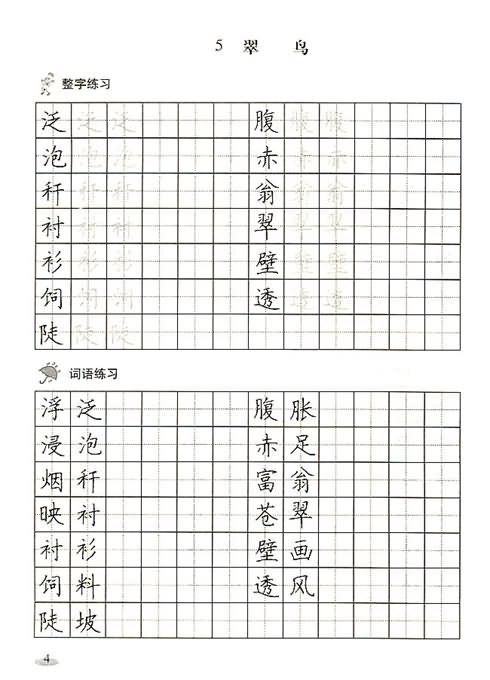 5 翠 鸟
整字练习
泛 泛 泛 腹 腹 腹
泡 泡 泡 赤 赤 赤
秆 秆 秆 翁 翁 翁
衬 衬 衬 翠 翠 翠
衫 衫 衫 壁 壁 壁
饲 饲 饲 透 透 透
陡 陡 陡
词语练习
浮泛 腹胀
浸泡 赤足
烟秆 富翁
映衬 苍翠
衬衫 壁画
饲料 透风
陡坡
4